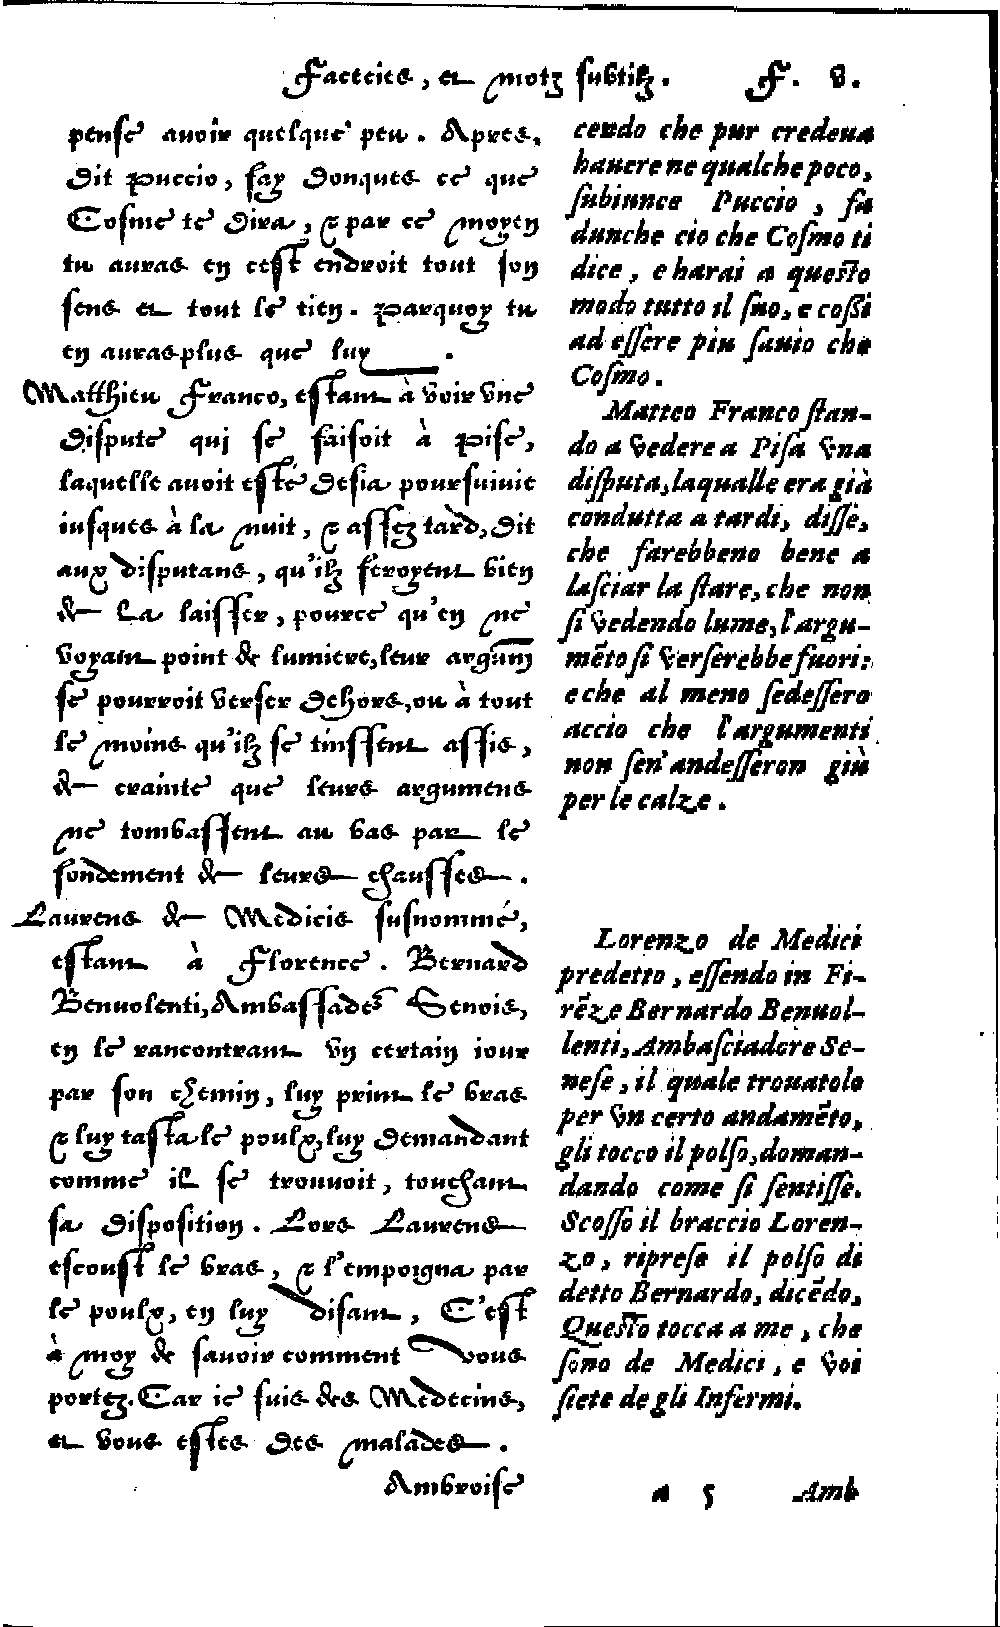 Facecies, et motz subtilz. F. 8.
pense avoir quelque peu. Apres,
dit Puccio, fay donques ce que
Cosme te dira, & par ce moyen
tu auras en cest endroit tout son
sens et tout le tien. Parquoy tu
en auras plus que luy.
Matthieu Franco, estant à voir vne
dispute qui se faisoit à Pise,
laquelle auoit esté desia poursuiuie
iusques à la nuit, & assez tard, dit
aux disputans, qu'ilz feroyent bien
de la laisser, pource qu'en ne
voyant point de lumiere, leur argumẽt
se pourroit verser dehors, ou à tout
le moins qu'ilz se tinssent assis,
de crainte que leurs argumens
ne tombassent au bas par le
fondement de leurs chausses.
Laurens de Medicis susnommé,
estant à Florence. Bernard
Benuolenti, Ambassadeᷣ Senois,
en le rancontrant vn certain iour
par son chemin, luy print le bras
& luy tasta le poulx, luy demandant
comme il se trouuoit, touchant
sa disposition. Lors Laurens
escoust le bras, & l'empoigna par
le poulx, en luy disant, C'est
à moy de sauoir comment vous
portez. Car ie suis des Medecins,
et vous estes des malades.
Ambroise
cendo che pur credeua
hauere ne qualche poco,
ſubiunce Puccio, fa
dunche cio che Coſmo ti
dice, e harai a queſto
modo tutto il ſuo, e coſſi
ad eſſere piu ſauio che
Coſmo.
Matteo Franco ſtan-
do a vedere a Piſa vna
diſputa, laqualle era già
condutta a tardi, diſſe,
che farebbeno bene a
laſciar la ſtare, che non
ſi vedendo lume, l'argu-
mẽto ſi verſerebbe fuori:
e che al meno ſedeſſero
accio che l'argumenti
non ſen' andeſſeron giù
per le calze.
Lorenzo de Medici
predetto, eſſendo in Fi-
rẽze Bernardo Benuol-
lenti, Ambaſciadore Se-
neſe, il quale trouatolo
per vn certo andamẽto,
gli tocco il polſo, doman-
dando come ſi ſentiſſe.
Scoſſo il braccio Loren-
zo, ripreſe il polſo di
detto Bernardo, dicẽdo,
Queſto tocca a me, che
ſono de Medici, e voi
ſiete de gli Infermi.
a 5 Amb